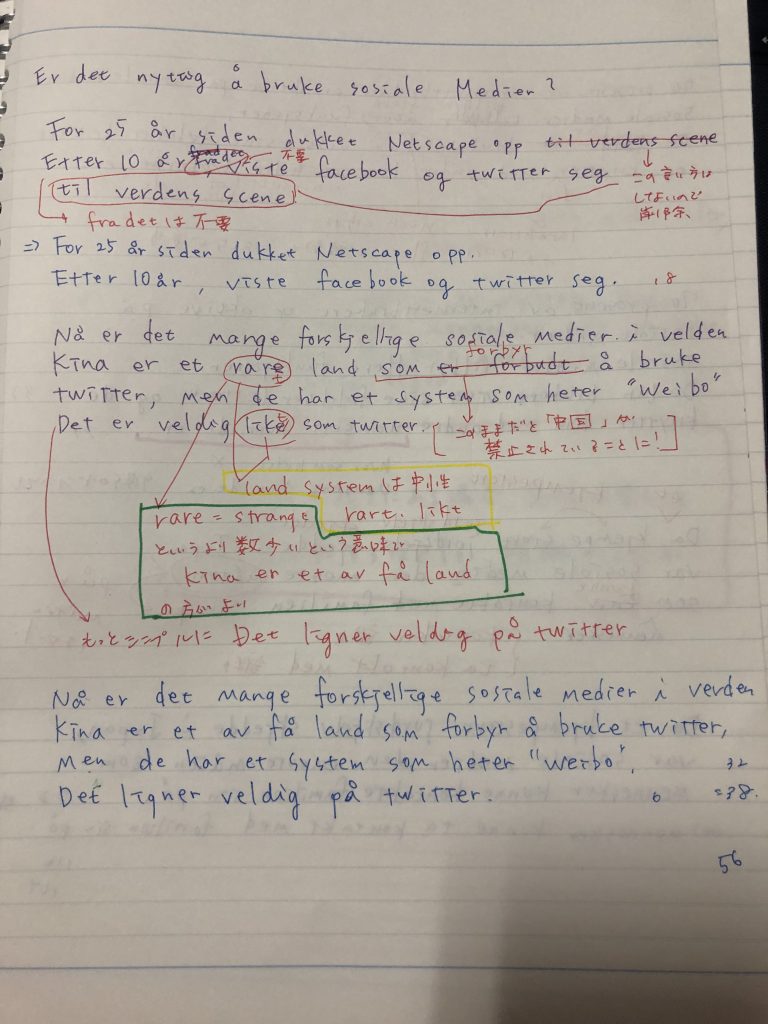 Er det nyttig å bruke sosiale Medier?
For 25 år siden dukket Netscape opp til verdens scene
Etter 10 år fradet, viste facebook og twitter seg
不要
til verdens scene
この言い方は
しないので
削除
→ fra det は 不要
⇒ For 25 år siden dukket Netscape opp.
Etter 10 år, viste facebook og twitter seg.
18
Nå er det mange forskjellige sosiale medier i velden
forbyr
Kina er et rare land som er forbudt å bruke
t
twitter, men de har et system som heter "Weibo"
Det er veldig like som twitter.
t
このままだと「中国」が
禁止されていることに!
land system は 中性
rart. likt
rare = strange
というより数少いという意味で
Kina er et av få land
の方がよい
もっとシンプルに Det ligner veldig på twitter
Nå er det mange forskjellige sosiale medier i verden
Kina er et av få land som forbyr å bruke twitter,
Men de har et system som heter "Weibo".
32
Det ligner veldig på twitter.
6
=38.
56